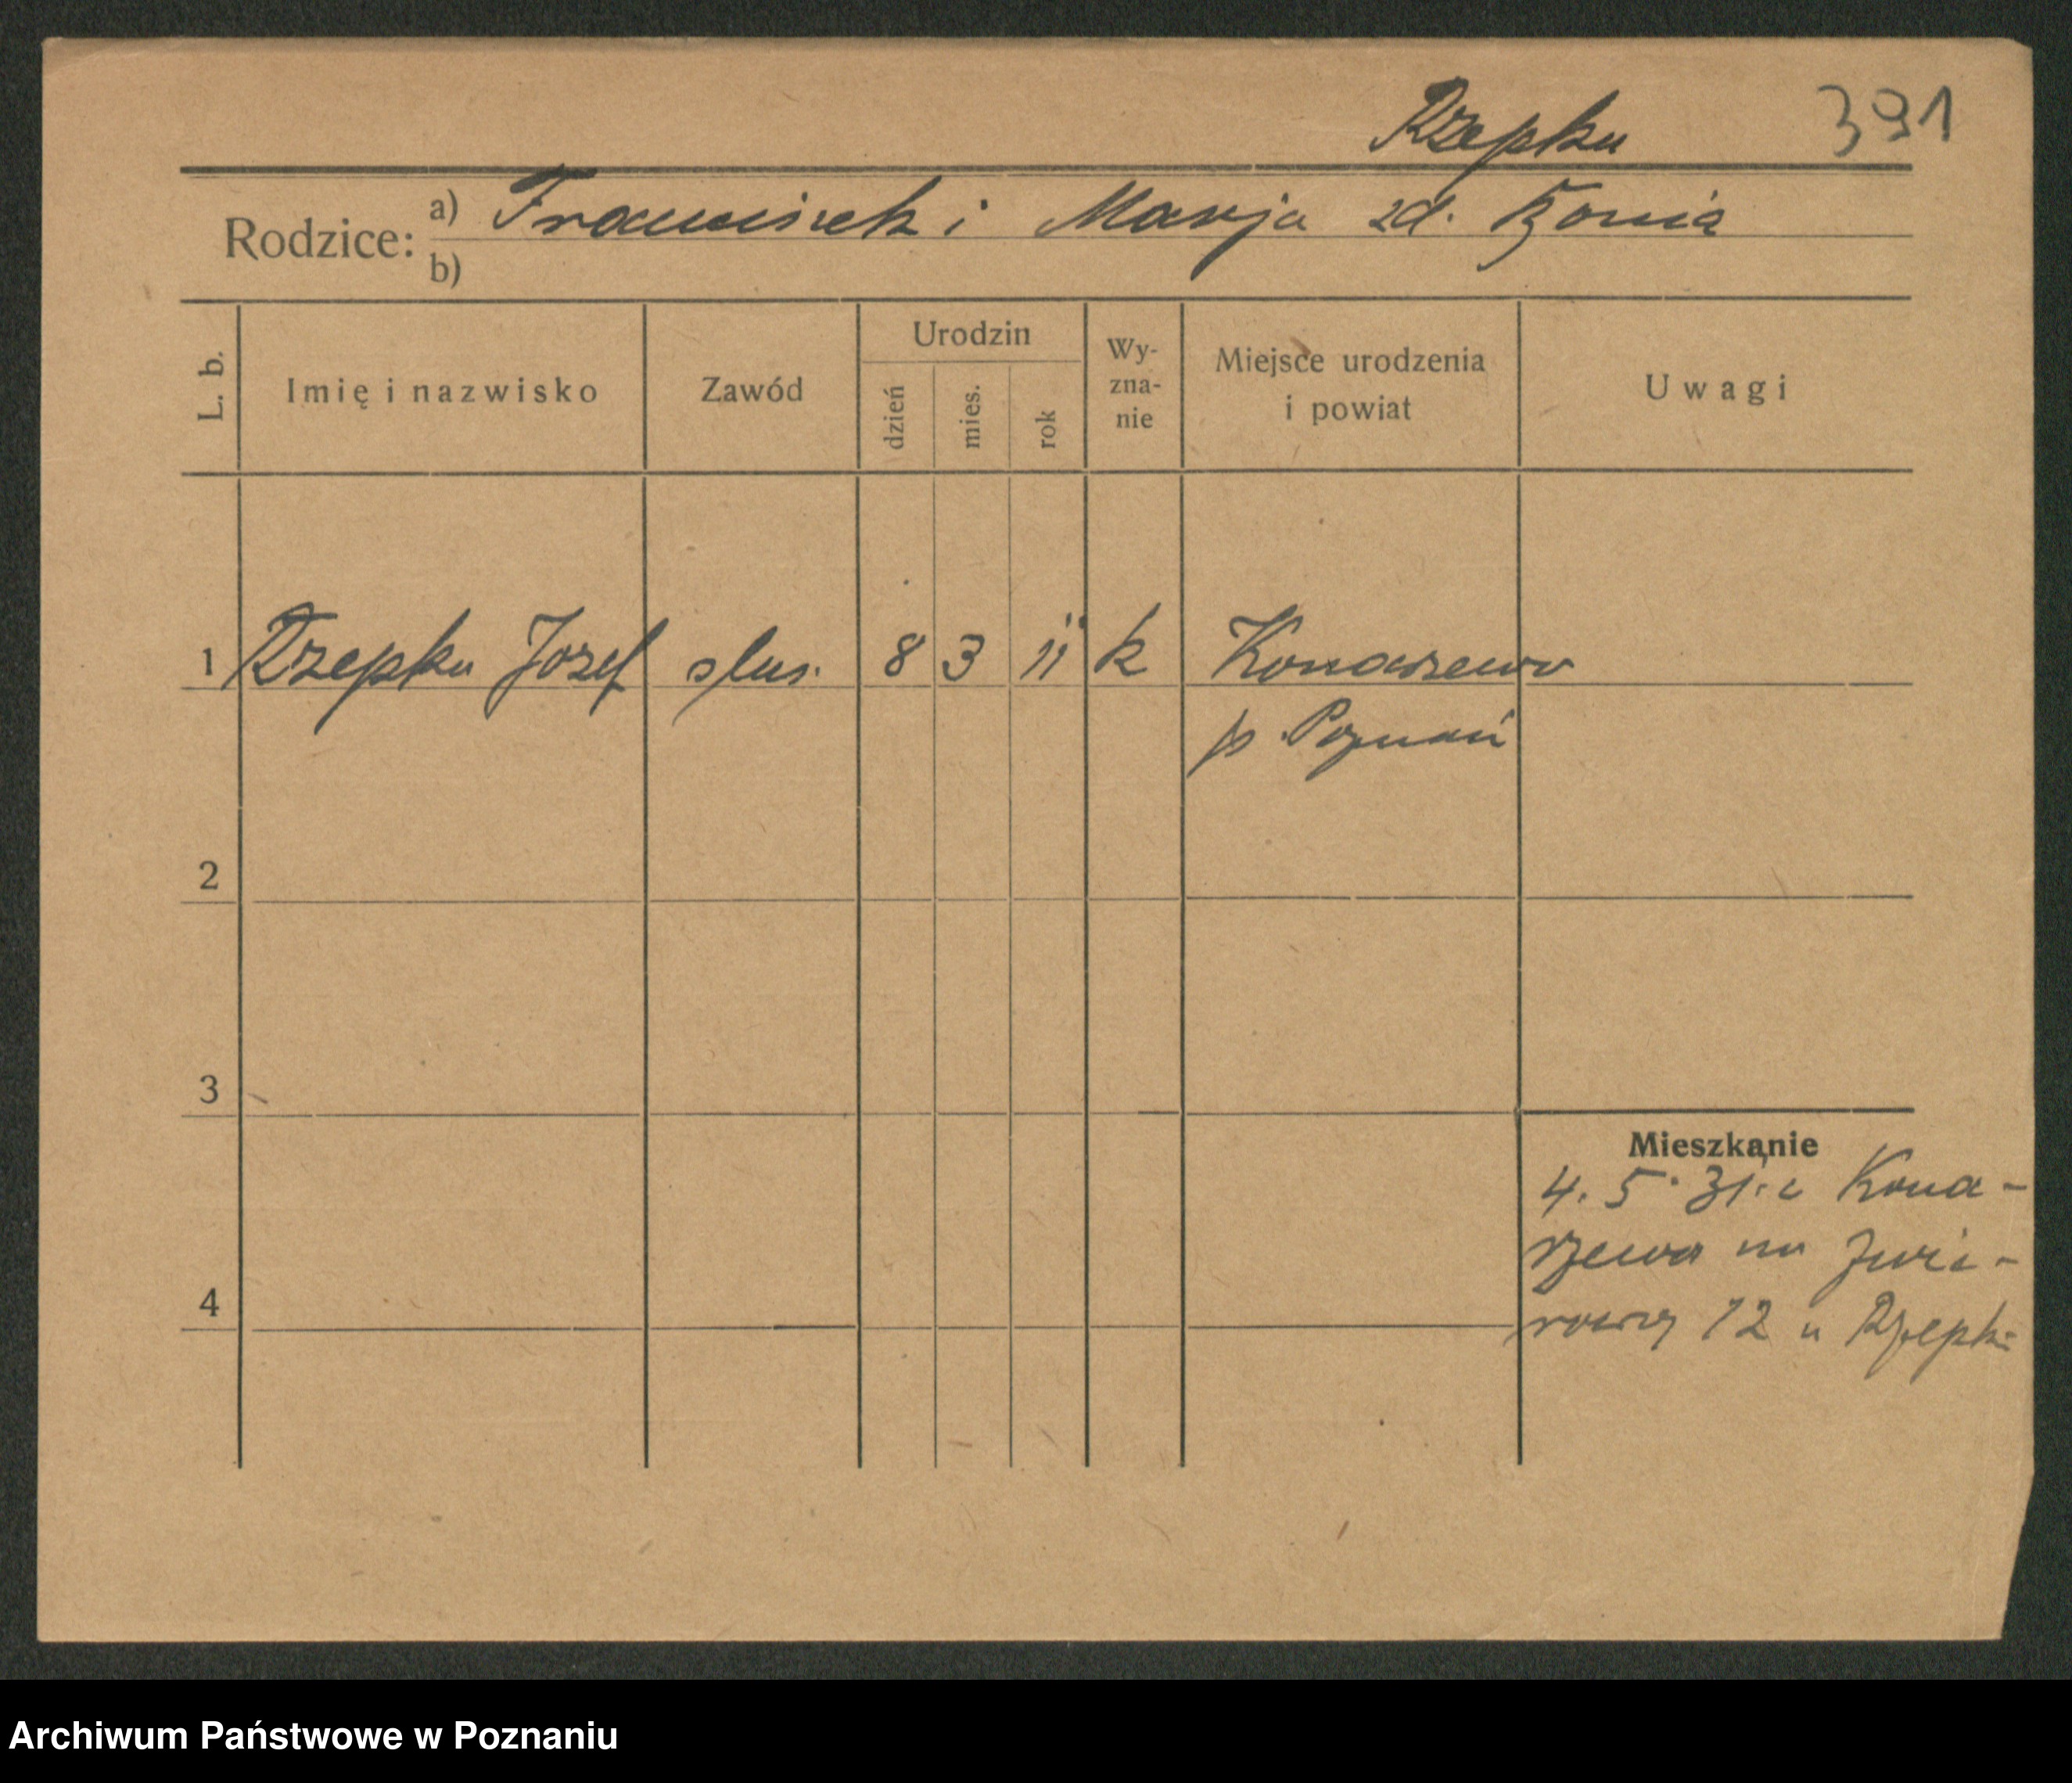 Rzepka 391
Rodzice: a) Franciszek i Marja zd.
b)
L. b. Imię i nazwisko Zawód Urodzin dzień mies. rok Wy-zna-nie Miejsce urodzenia i powiat Uwagi
1 Rzepka Józef slus. 8 3 11 k Konarzewo
p. Poznań
2
3
Mieszkanie
4. 5. 31. z Kona-
rzewa na Żwi-
4
rową 12 u Rzepki
Archiwum Państwowe w Poznaniu